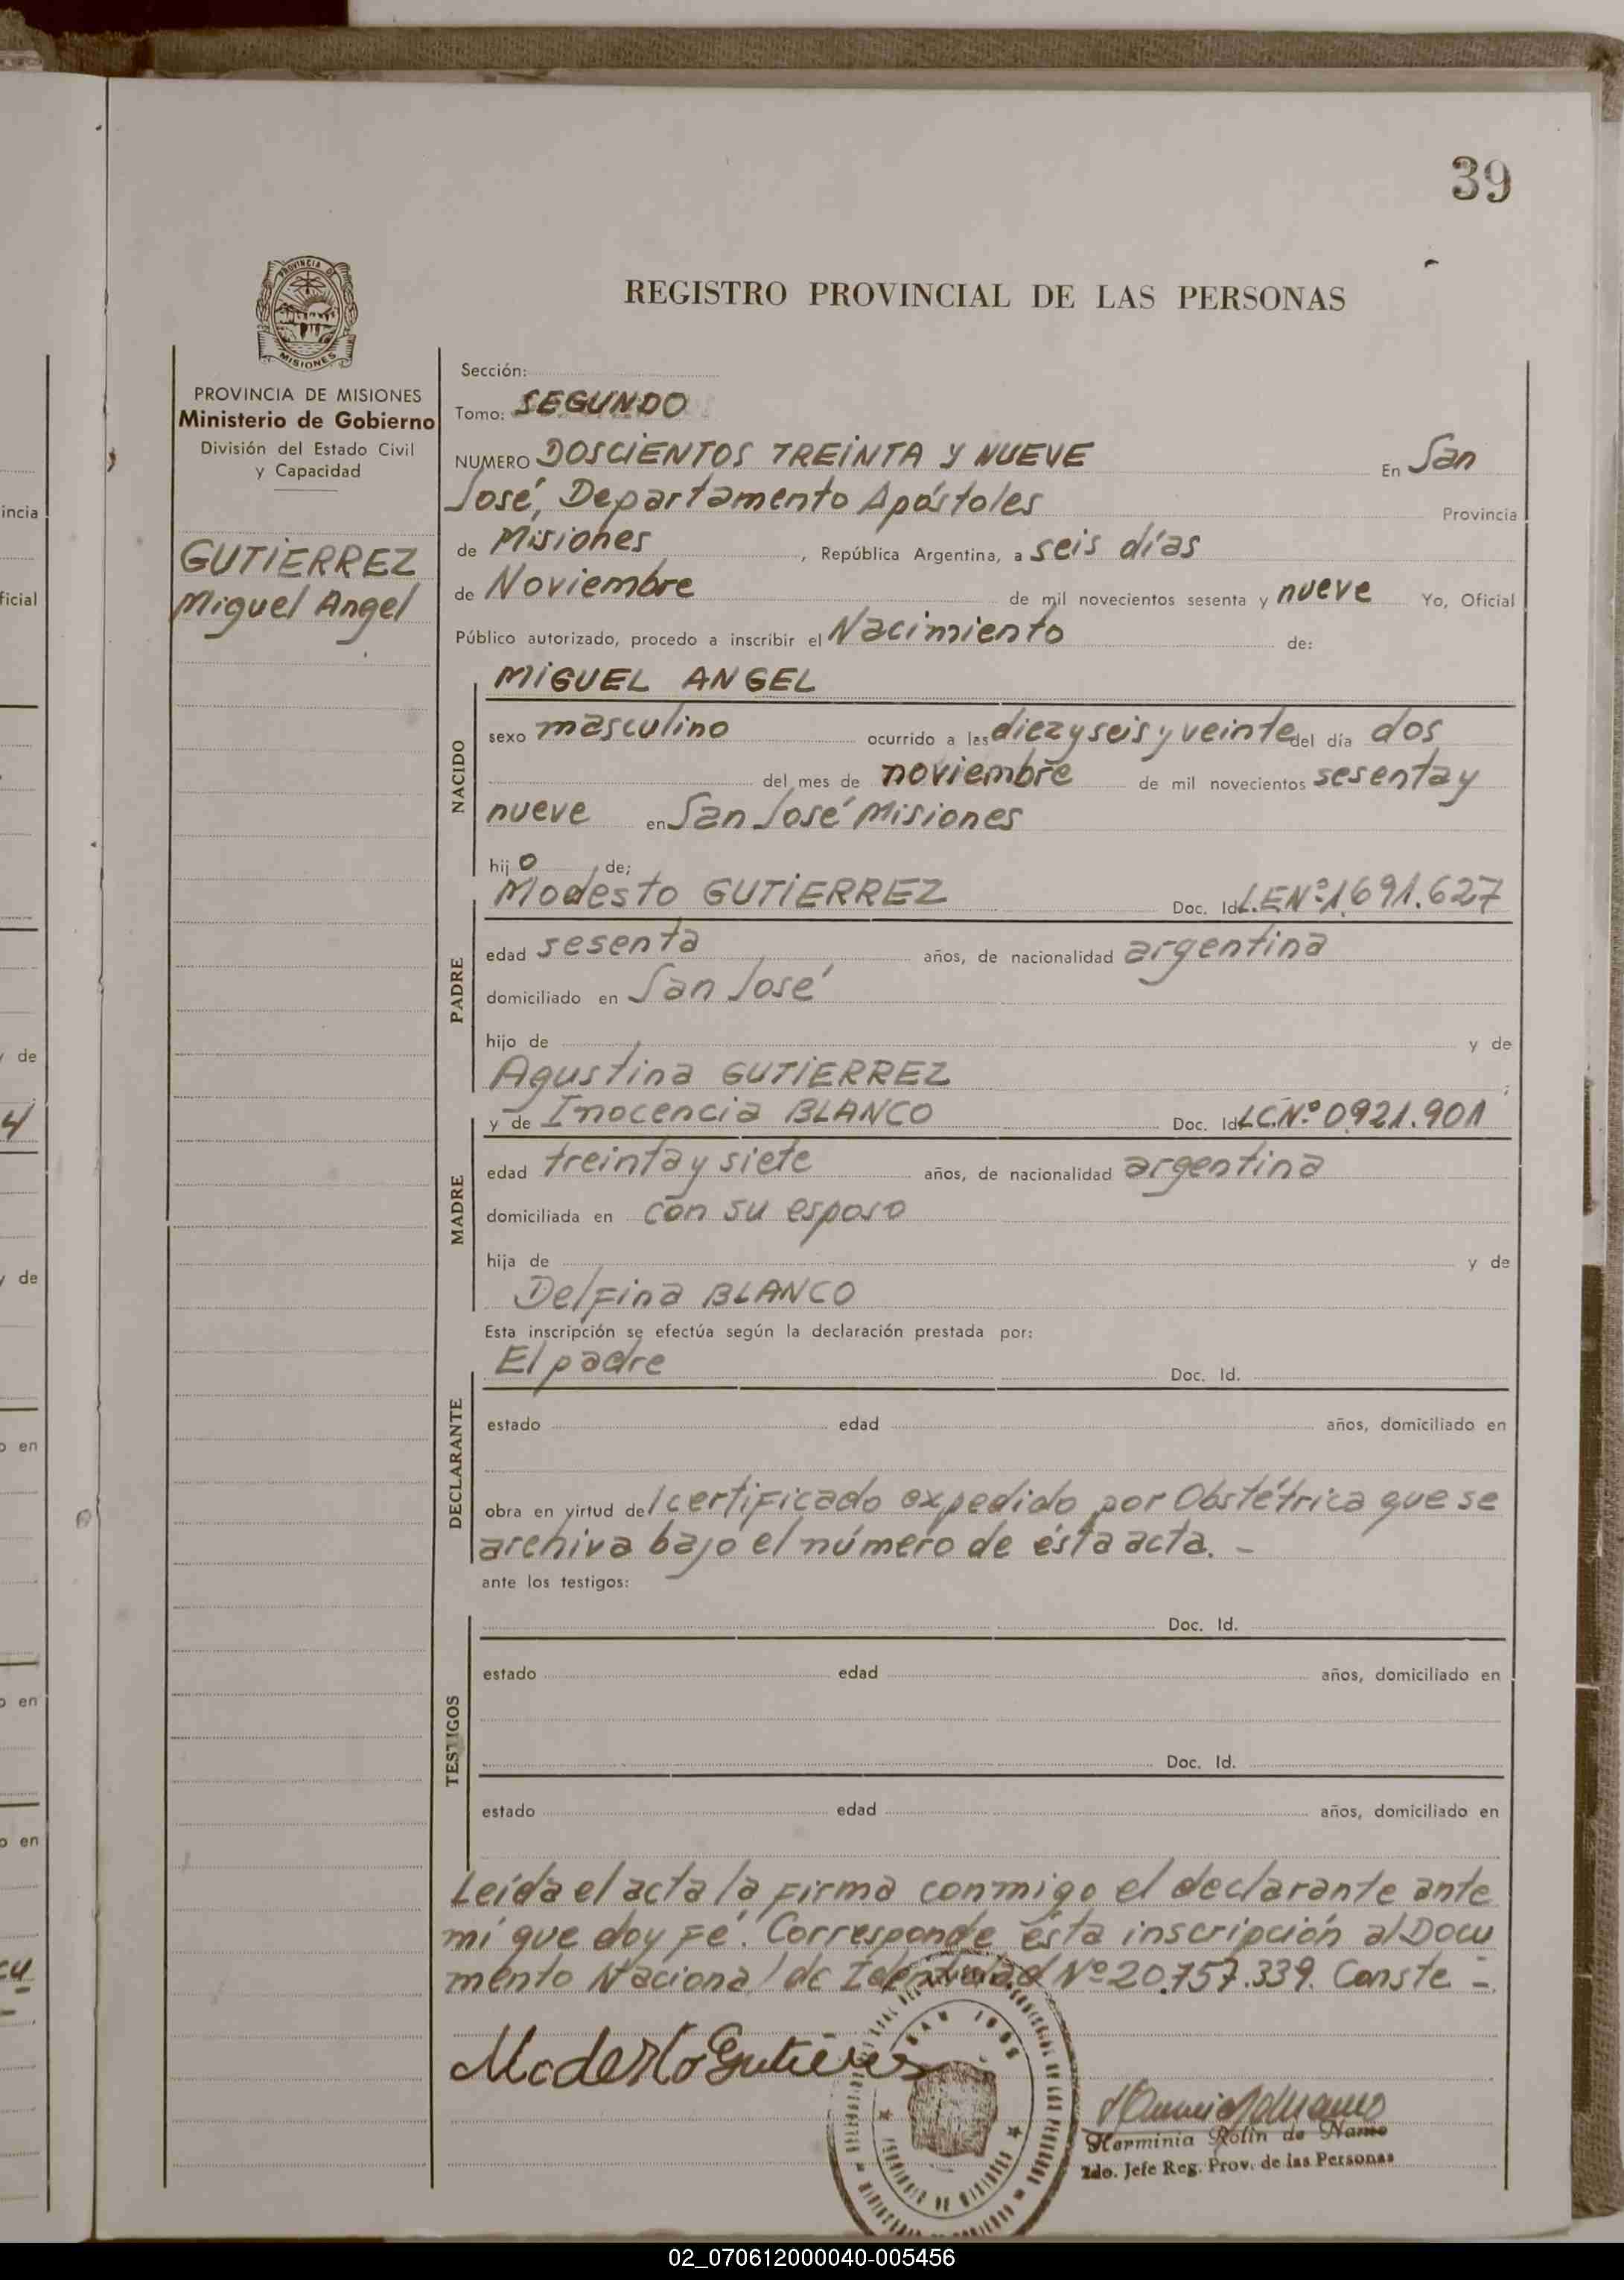 39
PROVINCIA DE
MISIONES
REGISTRO PROVINCIAL DE LAS PERSONAS
PROVINCIA DE MISIONES
Ministerio de Gobierno
División del Estado Civil
y Capacidad
GUTIERREZ
Miguel Angel
Sección:
Tomo: SEGUNDO
NUMERO DOSCIENTOS TREINTA Y NUEVE En San
José, Departamento Apóstoles Provincia
de Misiones, República Argentina, a seis días
de Noviembre de mil novecientos sesenta y nueve Yo, Oficial
Público autorizado, procedo a inscribir el Nacimiento de:
MIGUEL ANGEL
NACIDO
sexo masculino ocurrido a las diez y seis y veinte del día dos
del mes de noviembre de mil novecientos sesenta y
nueve en San José Misiones
hijo de;
Modesto GUTIERREZ Doc. Id. L.E Nº 1.691.627
PADRE
edad sesenta años, de nacionalidad argentina
domiciliado en San José
hijo de y de
Agustina GUTIERREZ ;
y de Inocencia BLANCO Doc. Id. L.C.Nº 0.921.901
MADRE
edad treinta y siete años, de nacionalidad argentina
domiciliada en con su esposo
hija de y de
Delfina BLANCO
Esta inscripción se efectúa según la declaración prestada por:
El padre Doc. Id.
DECLARANTE
estado edad años, domiciliado en
obra en virtud del certificado expedido por Obstétrica que se
archiva bajo el número de ésta acta. -
ante los testigos:
Doc. Id.
TESTIGOS
estado edad años, domiciliado en
Doc. Id.
estado edad años, domiciliado en
Leída el acta la firma conmigo el declarante ante
mí que doy fé. Corresponde ésta inscripción al Docu
mento Nacional de Identidad Nº 20.757.339. Conste -.
Modesto Gutierres
SAN JOSE
PROVINCIA DE MISIONES
Herminia Rolin de Namo
2do. Jefe Reg. Prov. de las Personas
incia
ficial
y de
4
y de
o en
o en
o en
02_070612000040-005456